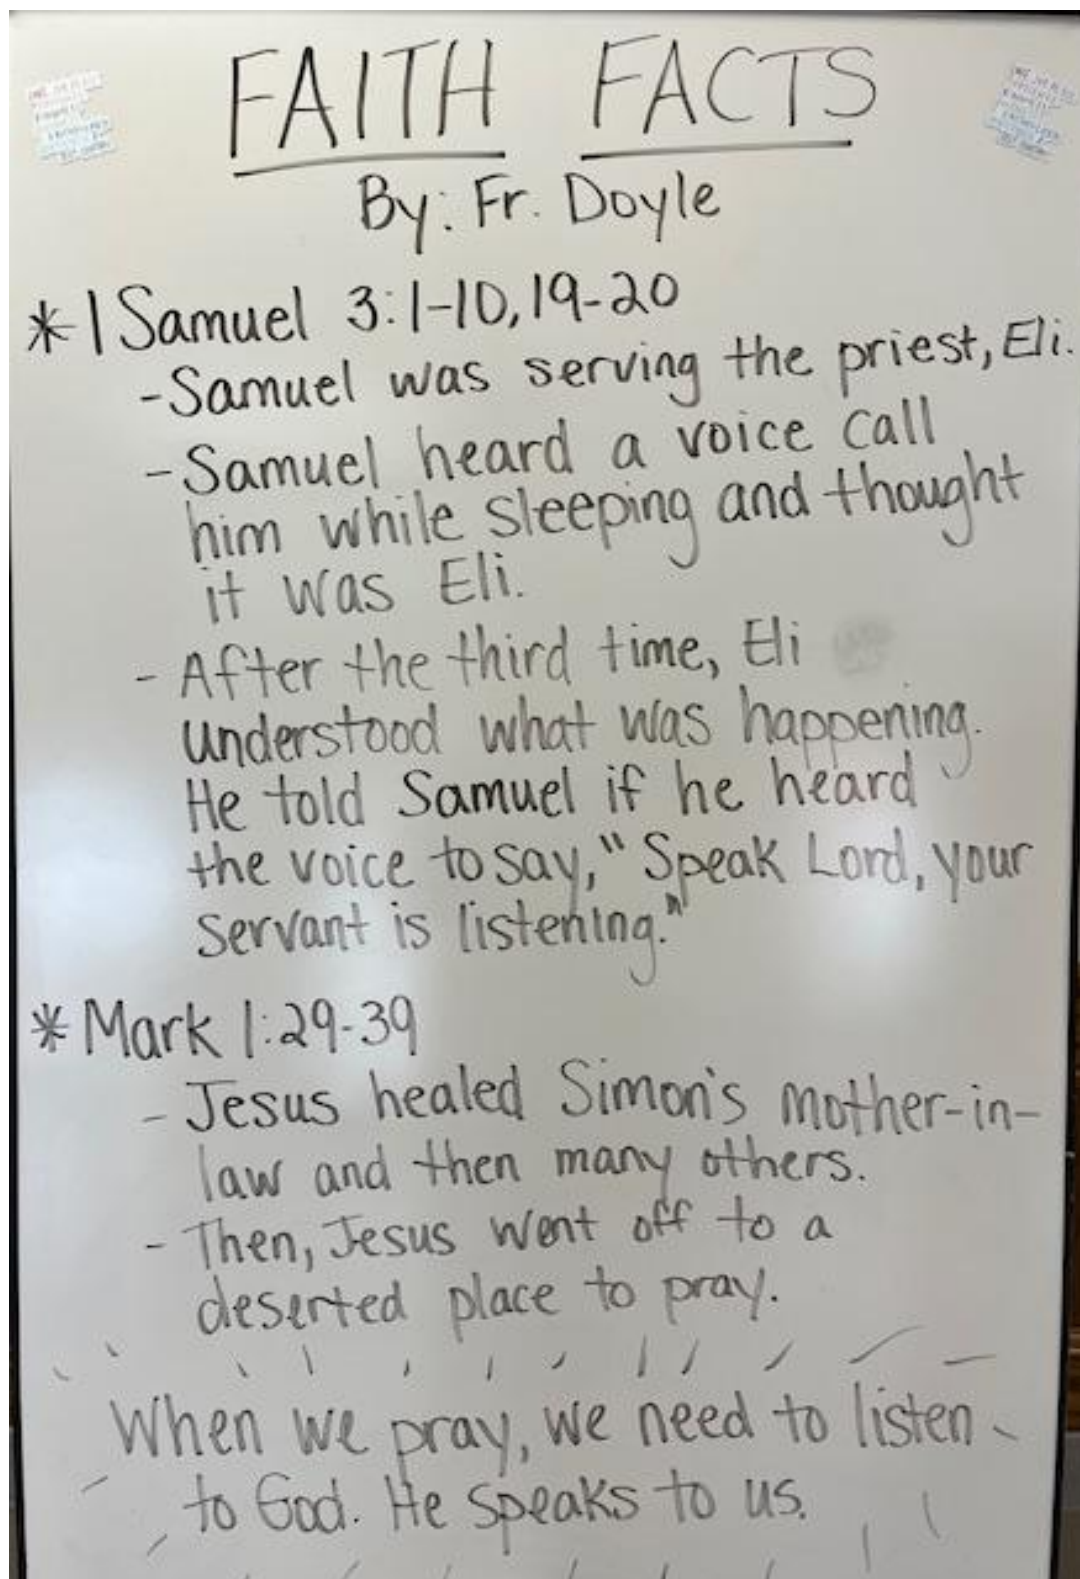 FAITH FACTS
By: Fr. Doyle
* 1 Samuel 3:1-10, 19-20
- Samuel was serving the priest, Eli.
- Samuel heard a voice call
him while sleeping and thought
it was Eli.
- After the third time, Eli
understood what was happening.
He told Samuel if he heard
the voice to say, "Speak Lord, your
servant is listening."
* Mark 1:29-39
- Jesus healed Simon's mother-in-
law and then many others.
- Then, Jesus went off to a
deserted place to pray.
When we pray, we need to listen
to God. He speaks to us.